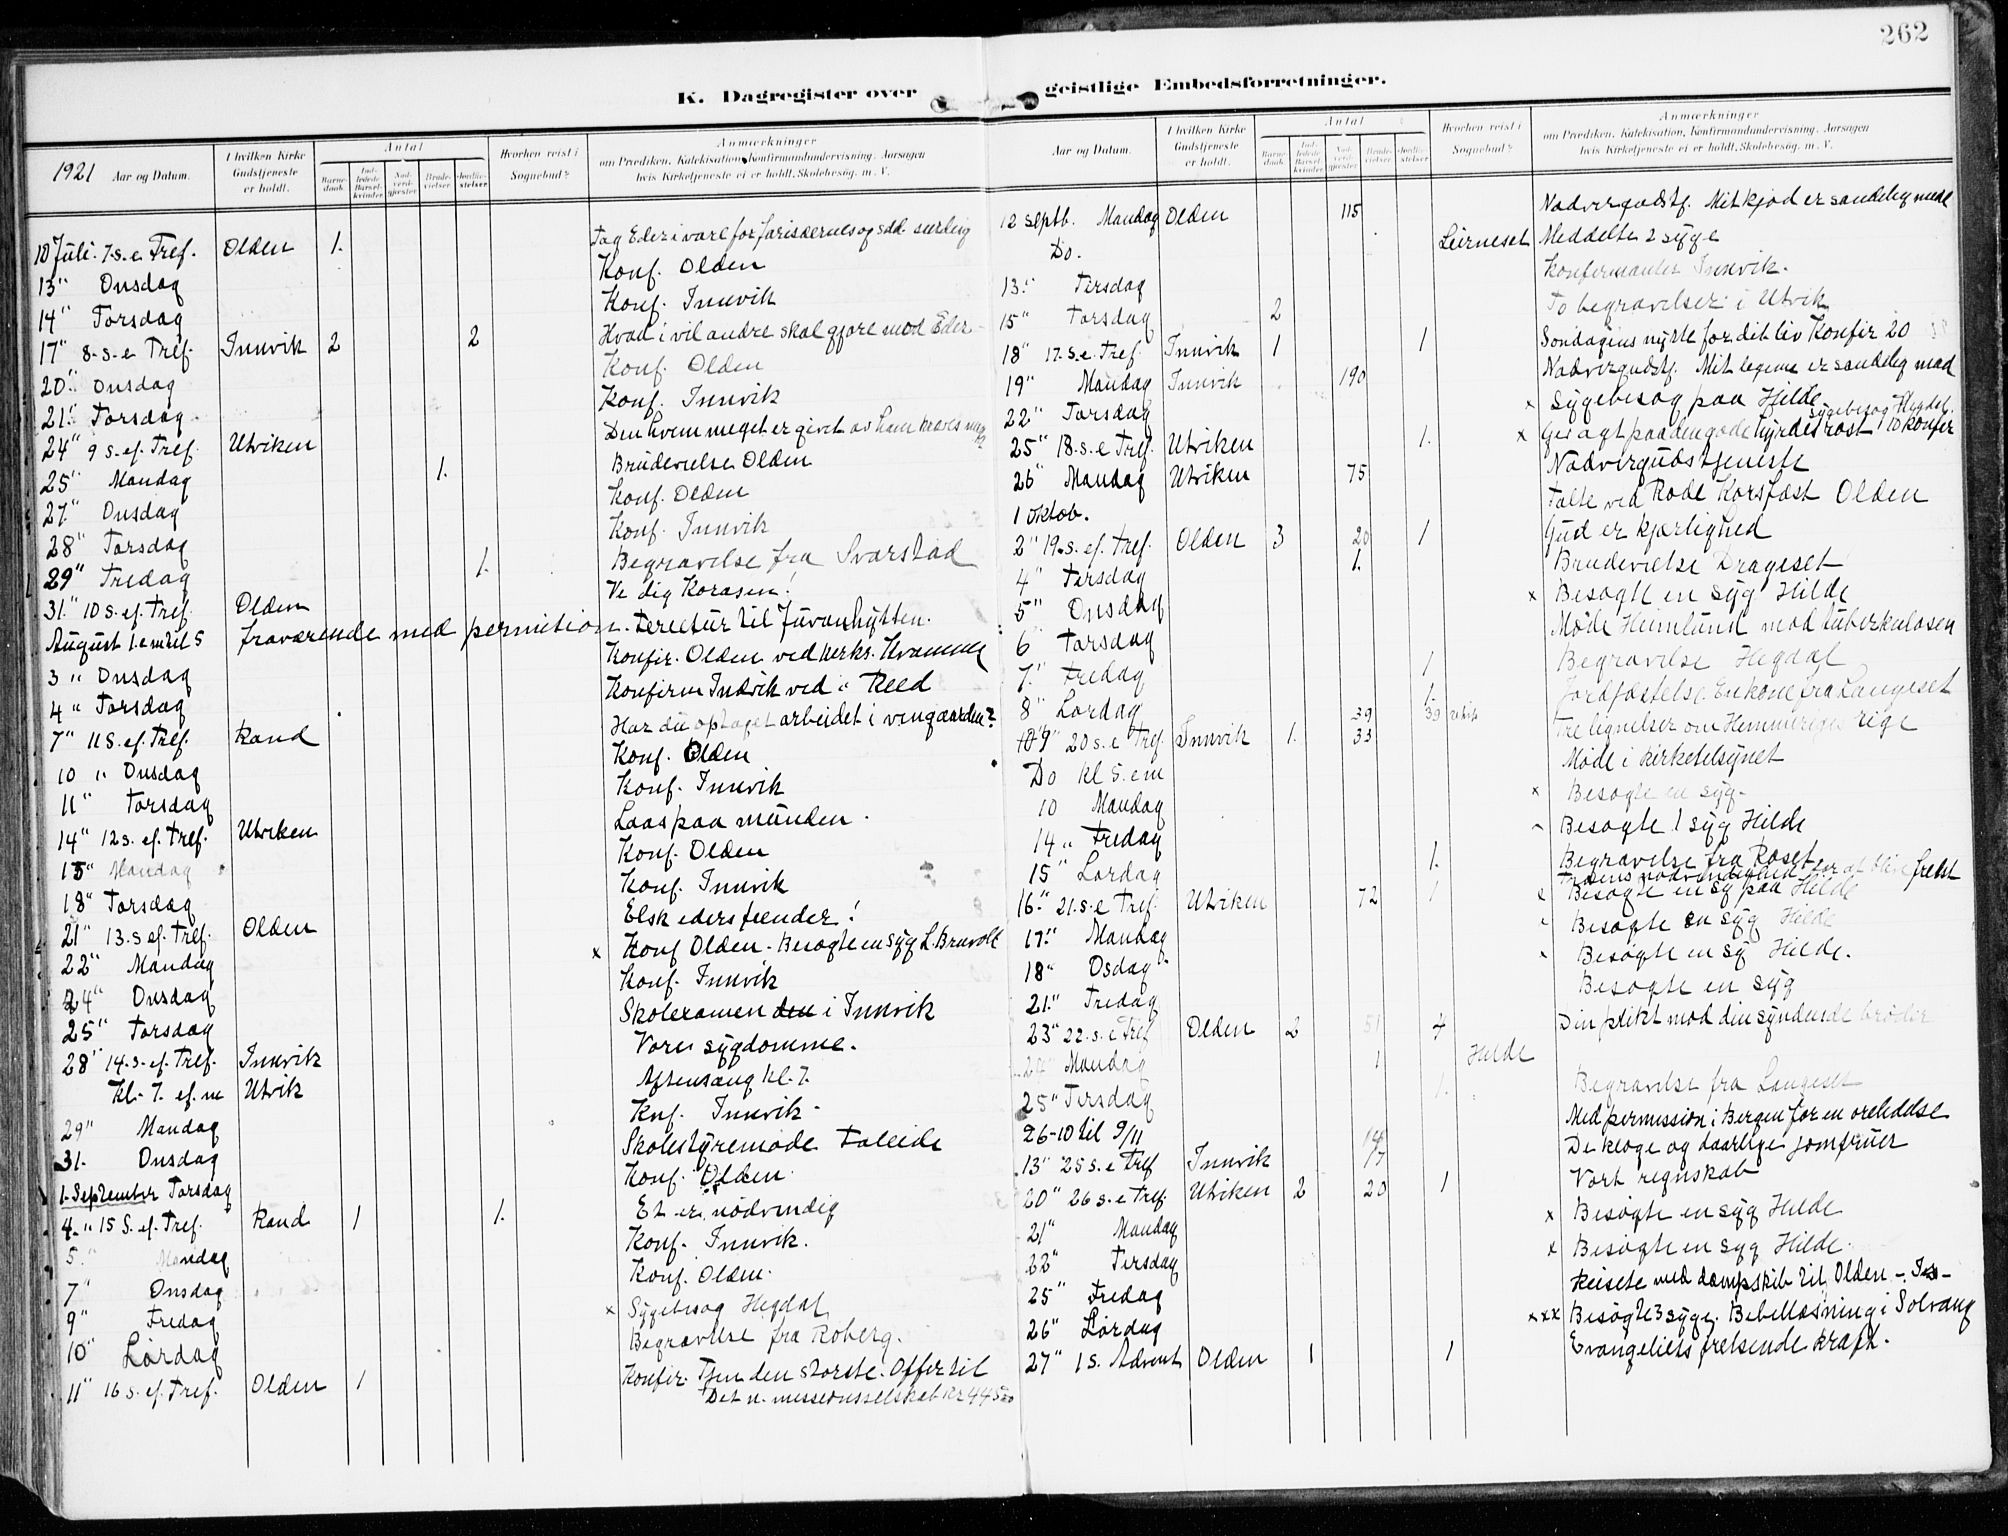 262
K. Dagregister over geistlige Embedsforretninger.
1921 Aar og Datum. I hvilken Kirke Gudstjeneste er holdt. Antal Barne-daab. Ind-ledede Barsel-kvinder Nad-verd-gjester Brude-vielser Jordfæ-stelser Hvorhen reist i Sognebud? Anmærkninger om Prædiken, Katekisation, Konfirmandundervisning, Aarsagen hvis Kirketjeneste ei er holdt, Skolebesøg, m. V.
10 Juli. 7. s. e Tref. Olden 1. Tag Eder i vare for farisæernes og sdd surdeig
13" Onsdag Konf. Olden
14" Torsdag Konf. Innvik
17" 8. s. e Tref. Innvik 2 2 Hvad i vil andre skal gjøre mod Eder
20" Onsdag Konf. Olden
21" Torsdag Konf. Innvik
24" 9 s. ef. Tref. Utviken Den hvem meget er givet av ham kræves meget
25" Mandag 1. Brudevielse Olden
27" Onsdag Konf. Olden
28" Torsdag Konf. Innvik
29" Fredag 1. Begravelse fra Svarstad
31." 10 s. ef. Tref. Olden Ve dig Korasin!
August 1. em til 5 fraværende med permition. Toretur til Juvasshytten.
3 " Onsdag Konfir. Olden ved kerks. Kvamme
4 " Torsdag Konfirm Indvik ved " Reed
7" 11 s. ef. Tref. Rand Har du optaget arbeidet i vingaarden?
10 " Onsdag Konf. Olden
11" Torsdag Konf. Innvik
14" 12 s. ef. Tref. Utviken Laas paa munden.
15" Mandag Konf. Olden
18" Torsdag Konf. Innvik
21" 13. s ef. Tref. Olden Elsk eders fiender!
22" Mandag x Konf Olden. Besøgte en syg L. Bruvolt
24" Onsdag Konf. Innvik
25" Torsdag Skolexamen i Innvik
28" 14. s. ef. Tref. Innvik Vores sygdomme.
Kl. 7. ef. m Utvik Aftensang kl. 7.
29" Mandag Knf. Innvik.
31. Onsdag Skolestyremøde Faleide
1. September Torsdag Konf. Olden
4. " 15 S. ef. Tref. Rand 1 1. Et er nødvendig
5." Mandag Konf. Innvik.
7" Onsdag Konf. Olden.
9" Fredag x Sygebesøg Hegdal
10" Lørdag Begravelse fra Roberg.
11" 16 s. ef. Tref. Olden 1 Konfir. Tjen den største. Offer til
Det n. missionsselskab kr 445
Aar og Datum. I hvilken Kirke Gudstjeneste er holdt. Antal Barne-daab. Ind-ledede Barsel-kvinder Nad-verd-gjester Brude-vielser Jordfæ-stelser Hvorhen reist i Sognebud? Anmærkninger om Prædiken, Katekisation, Konfirmandundervisning, Aarsagen hvis Kirketjeneste ei er holdt, Skolebesøg, m. V.
12 Septb. Mandag Olden 115 Nadvergudstj. Mit kjød er sandelig mad
Do. Leirneset Meddelte 2 syge
13." Tirsdag Konfermanter Innvik.
15" Torsdag 2 To begravelser i Utvik
18" 17. s. e Tref. Innvik 1 1 Søndagens nytte for dit liv Konfir 20
19" Mandag Innvik 190 Nadvergudstj. Mit legeme er sandelig mad
22" Torsdag x Sygebesøg paa Hilde
Sygebesøg Hegdal
25" 18. s. e Tref. Utviken 1. x Giv agt paa den gode hyrdes røst 10 konfir
26" Mandag Utviken 75 Nadvergudstjeneste
1 Oktob. Talte ved Røde Korsfæst Olden
2" 19. s. ef. Tref. Olden 3 20 1 Gud er kjærlighed
4" Tirsdag 1. Brudevielse Drageset
5" Onsdag x Besøgte en syg Hilde
6" Torsdag Møde Heimlund mod tuberkulosen
7." Fredag 1 Begravelse Hegdal
8" Lørdag 1. Jordfæstelse Enkone fra Langeset
9" 20 s. e Tref. Innvik 1. 39 33 Tre lignelser om Himmeriges rige
Do kl 5. em Møde i kirketilsynet
10 Mandag x Besøgte en syg.
14 " Fredag Besøgte 1 syg Hilde
15" Lørdag 1. Begravelse fra Roset
Troens nødvendighed for at blive frelst
16." 21. s. e Tref. Utviken 72 1 x Besøgte en sy paa Hilde
17." Mandag Besøgte en syg Hilde
18" Osdag Besøgte en sy Hilde.
21." Fredag Besøgte en syg
23" 22. s. e Tref Olden 2 51 4 Din plikt mod din syndende broder
24" Mandag 1 Hilde
25" Tirsdag 1. Begravelse fra Langeset
26-10 til 9/11 Med permission i Bergen for en øreledelse
13" 25 s. e Tref Innvik De kloge og daarlige jomfruer
20" 26 s. e Tref. Utviken 2 20 1 Vort regnskab
21" Mandag x Besøgte en syg Hilde
22" Tirsdag x Besøgte en syg Hilde.
25" Fredag Reisete med dampskib til Olden
26" Lørdag xxx Besøgte 3 syge. Bibellæsning i Solvang
27" 1 s. Advent Olden 1 1 Evangeliets frelsende kraft.